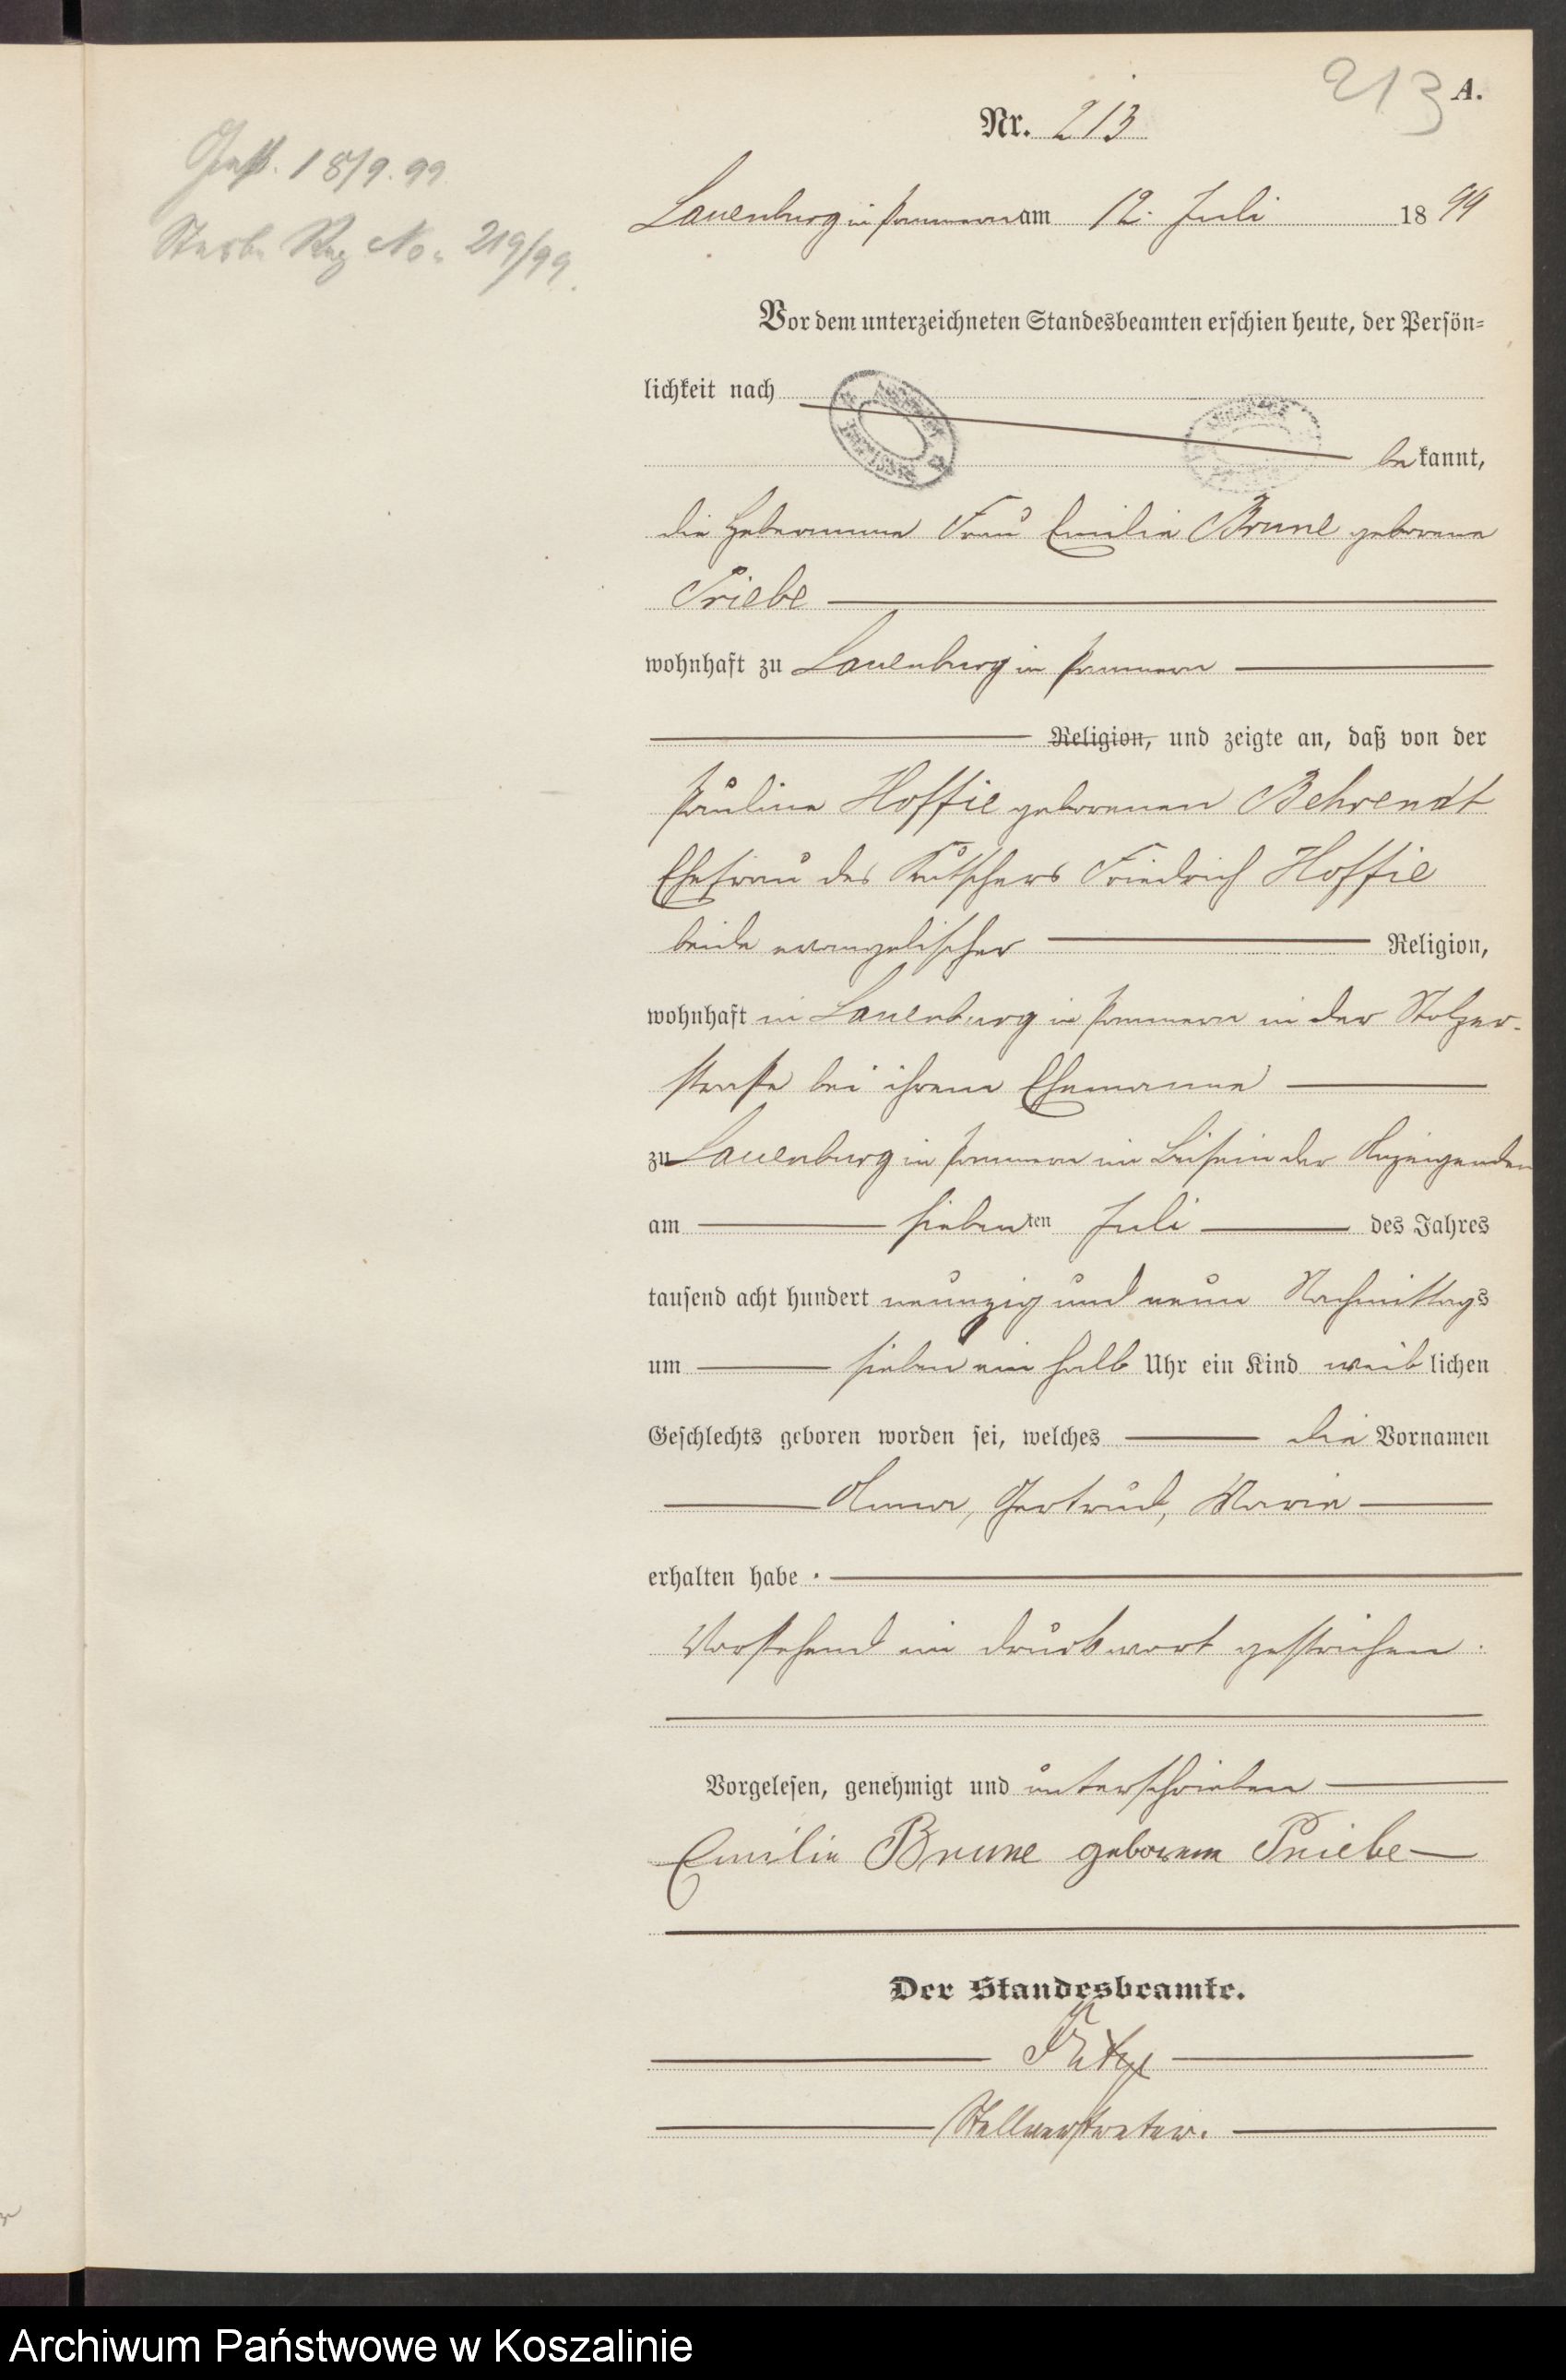 213 A.
Nr. 213
Gest. 18/9. 99
Sterbe Reg No. 219/99.
Lauenburg in Pommern am 12. Juli 18 99
Vor dem unterzeichneten Standesbeamten erschien heute, der Persön-
lichkeit nach
bekannt,
die Hebamme Frau Emilie Brune geborene
Priebe
wohnhaft zu Lauenburg in Pommern
Religion, und zeigte an, daß von der
Pauline Hoffie geborenen Behrendt
Ehefrau des Kutschers Friedrich Hoffie
beide evangelischer Religion,
wohnhaft in Lauenburg in Pommern in der Stolper-
straße bei ihrem Ehemanne
zu Lauenburg in Pommern im Beisein der Anzeigenden
am siebenten Juli des Jahres
tausend acht hundert neunzig und neun Nachmittags
um sieben ein halb Uhr ein Kind weiblichen
Geschlechts geboren worden sei, welches die Vornamen
Anna, Gertrud, Marie
erhalten habe.
Vorstehend ein Druckwort gestrichen.
Vorgelesen, genehmigt und unterschrieben
Emilie Brune geborene Priebe
Der Standesbeamte.
Stellvertreter.
Archiwum Państwowe w Koszalinie